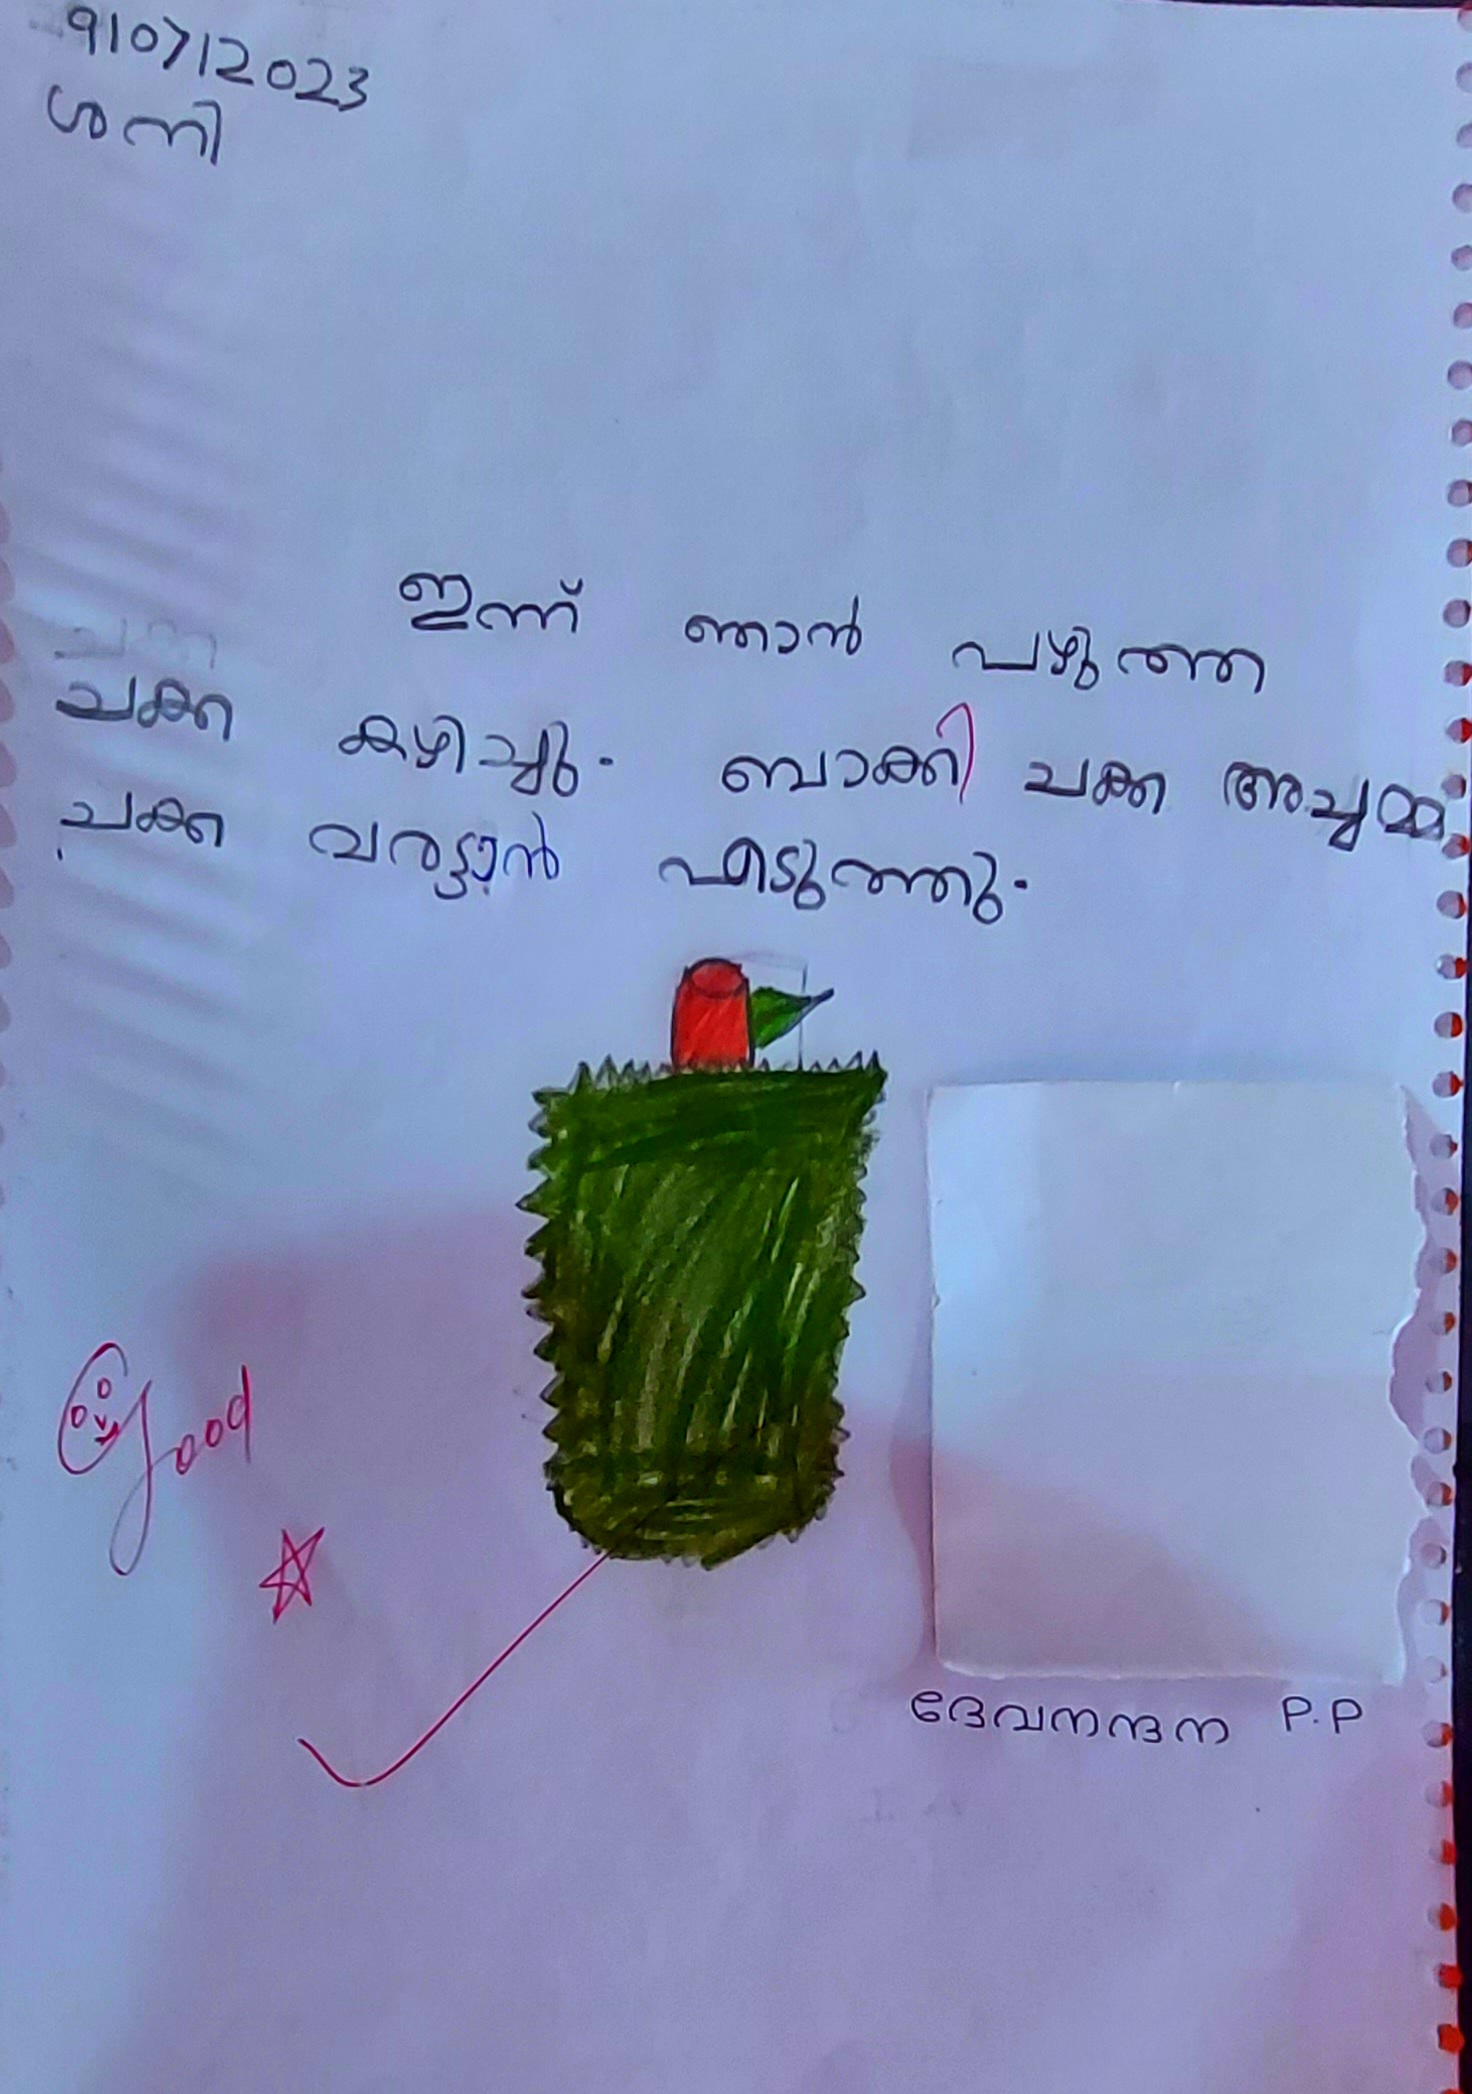 9/07/2023
ശനി
ഇന്ന് ഞാൻ പഴുത്ത
ചക്ക കഴിച്ചു. ബാക്കി ചക്ക അച്ചമ്മ
ചക്ക വരട്ടാൻ എടുത്തു.
Good
ദേവനന്ദന P.P